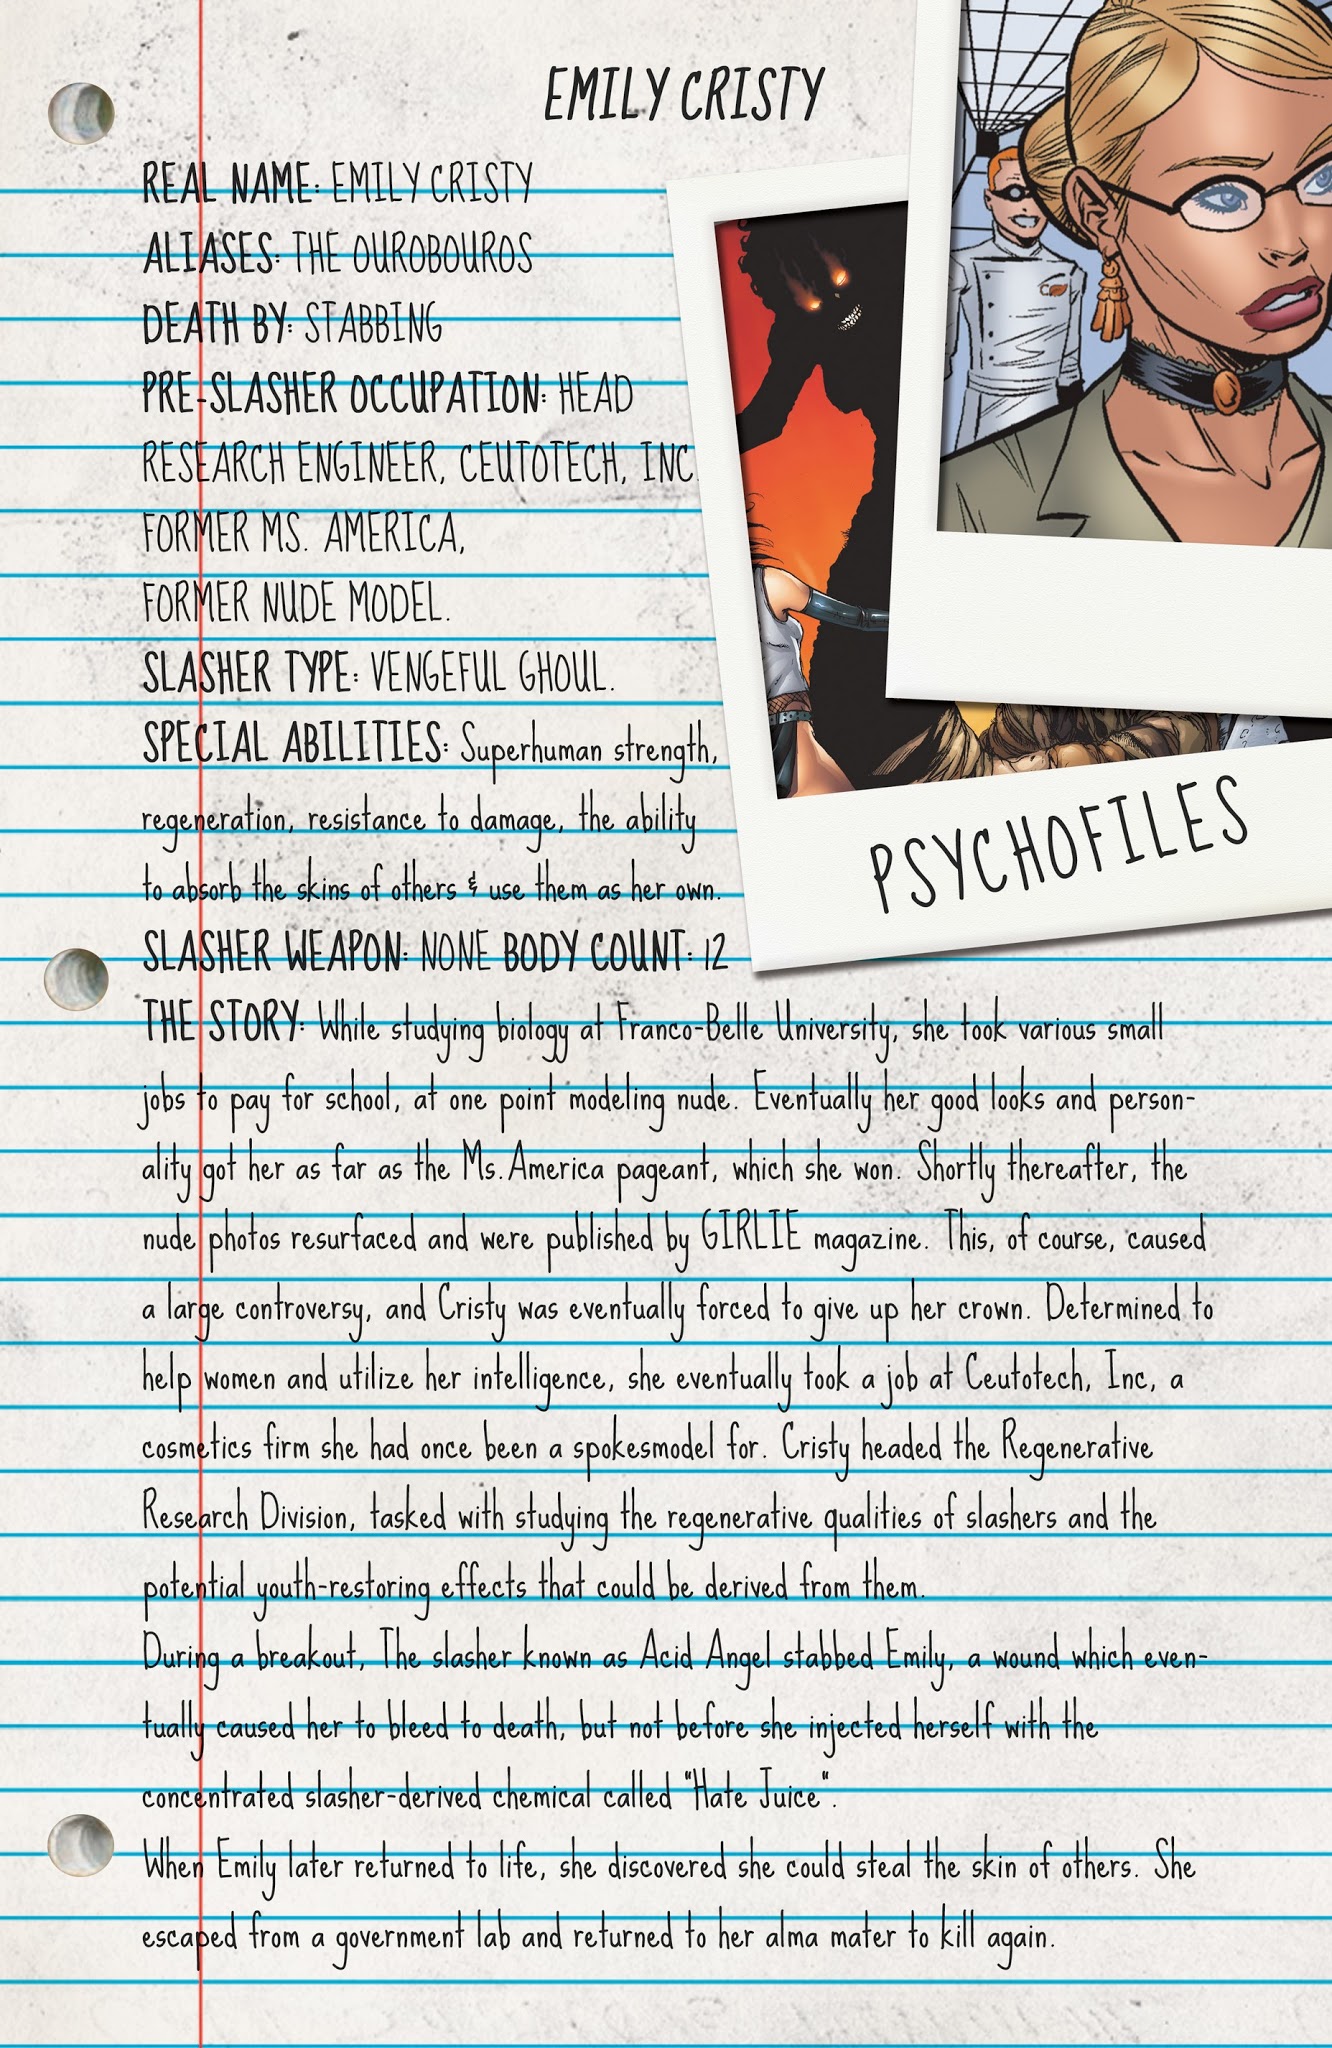 EMILY CRISTY
REAL NAME: EMILY CRISTY
ALIASES: THE OUROBOUROS
DEATH BY: STABBING
PRE-SLASHER OCCUPATION: HEAD
RESEARCH ENGINEER, CEUTOTECH, INC.
FORMER MS. AMERICA,
FORMER NUDE MODEL.
SLASHER TYPE: VENGEFUL GHOUL.
SPECIAL ABILITIES: Superhuman strength,
regeneration, resistance to damage, the ability
to absorb the skins of others & use them as her own.
PSYCHOFILES
SLASHER WEAPON: NONE BODY COUNT: 12
THE STORY: While studying biology at Franco-Belle University, she took various small
jobs to pay for school, at one point modeling nude. Eventually her good looks and person-
ality got her as far as the Ms. America pageant, which she won. Shortly thereafter, the
nude photos resurfaced and were published by GIRLIE magazine. This, of course, caused
a large controversy, and Cristy was eventually forced to give up her crown. Determined to
help women and utilize her intelligence, she eventually took a job at Ceutotech, Inc, a
cosmetics firm she had once been a spokesmodel for. Cristy headed the Regenerative
Research Division, tasked with studying the regenerative qualities of slashers and the
potential youth-restoring effects that could be derived from them.
During a breakout, The slasher known as Acid Angel stabbed Emily, a wound which even-
tually caused her to bleed to death, but not before she injected herself with the
concentrated slasher-derived chemical called "Hate Juice".
When Emily later returned to life, she discovered she could steal the skin of others. She
escaped from a government lab and returned to her alma mater to kill again.